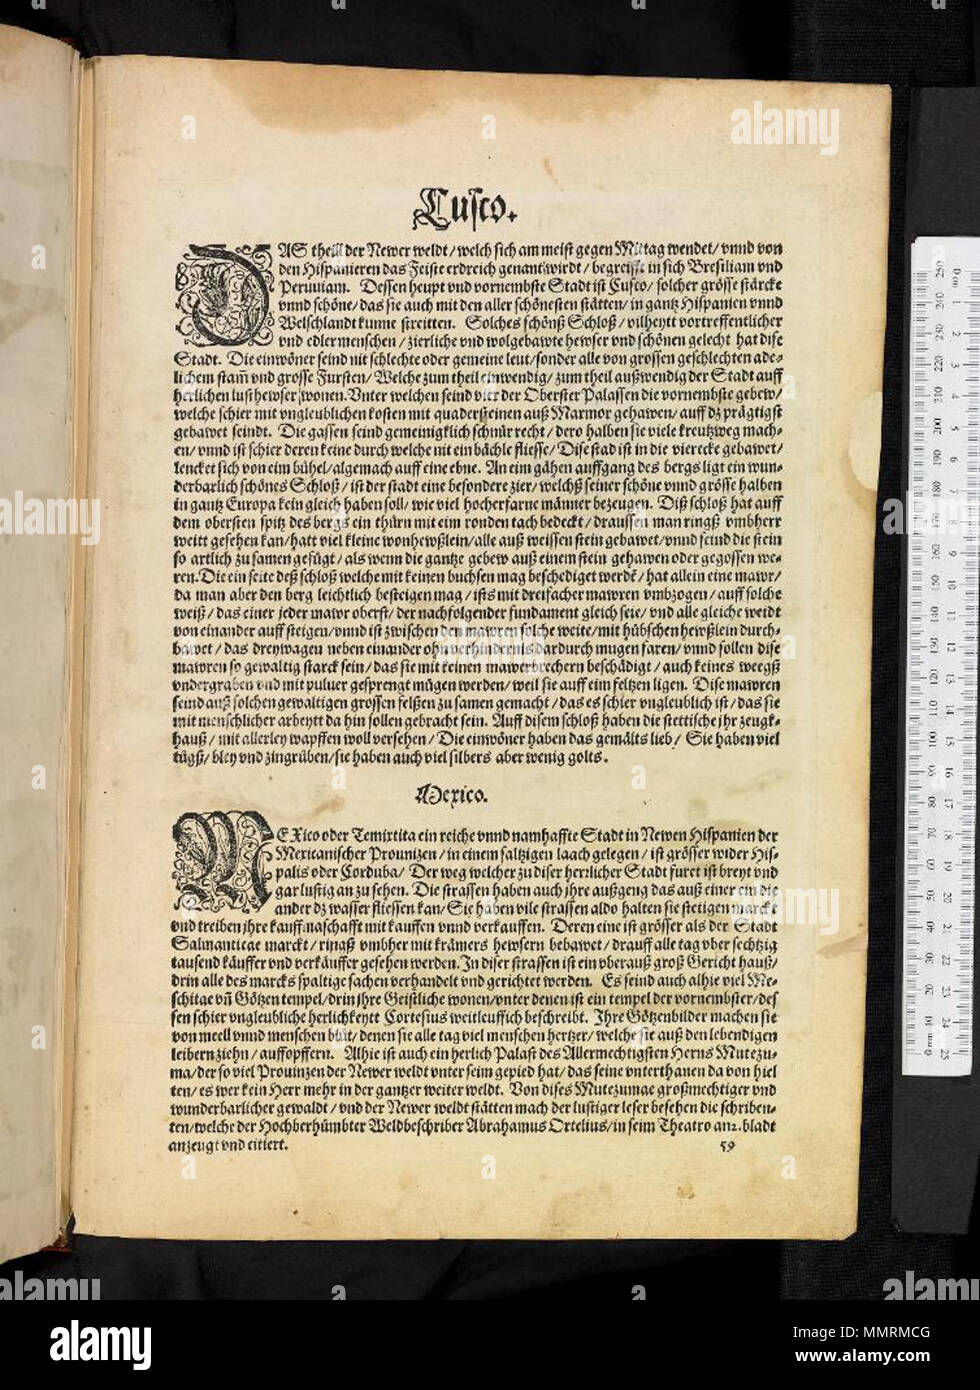 Cusco.
DAS theill der Newer weldt / welch sich am meist gegen Mittag wendet / vnnd von
den Hispanieren das Feiste erdreich genant wirdt / begreifft in sich Bresiliam vnd
Peruuiam. Dessen heupt vnd vornembste Stadt ist Cusco / solcher grösse stärcke
vnnd schöne / das sie auch mit den aller schönesten stätten / in gantz Hispanien vnnd
Welschlandt kunne streitten. Solches schönß Schloß / vilheytt vortreffentlicher
vnd edler menschen / zierliche vnd wolgebawte hewser vnd schönen gelecht hat dise
Stadt. Die einwöner seind nit schlechte oder gemeine leut / sonder alle von grossen geschlechten ade-
lichem stam̃ vnd grosse Fursten / Welche zum theil einwendig / zum theil außwendig der Stadt auff
herlichen lusthewser wonen. Vnter welchen seind vier der Oberster Palassen die vornembste gebew /
welche schier mit vngleublichen kosten mit quadersteinen auß Marmor gehawen / auff dz prägtigst
gebawet seindt. Die gassen seind gemeinigklich schnür recht / dero halben sie viele kreutzweg mach-
en / vnnd ist schier deren keine durch welche nit ein bächle fliesse / Dise stad ist in die vierecke gebawet /
lencket sich von eim bühel / algemach auff eine ebne. An eim gähen auffgang des bergs ligt ein wun-
derbarlich schönes Schloß / ist der stadt eine besondere zier / welchß seiner schöne vnnd grösse halben
in gantz Europa kein gleich haben soll / wie viel hocherfarne männer bezeugen. Diß schloß hat auff
dem obersten spitz des bergs ein thürn mit eim ronden tach bedeckt / draussen man ringß vmbherr
weitt gesehen kan / hatt viel kleine wonhewßlein / alle auß weissen stein gebawet / vnnd seind die stein
so artlich zu samen gefügt / als wenn die gantze gebew auß einem stein gehawen oder gegossen we-
ren. Die ein seite deß schloß welche mit keinen buchsen mag beschediget werdẽ / hat allein eine mawr /
da man aber den berg leichtlich besteigen mag / ists mit dreifacher mawren vmbzogen / auff solche
weiß / das einer jeder mawr oberst / der nachfolgender fundament gleich seie / vnd alle gleiche weidt
von einander auff steigen / vnnd ist zwischen den mawren solche weite / mit hübschen hewßlein durch-
bawet / das drey wagen neben einander ohn verhindernis dardurch mugen faren / vnnd sollen dise
mawren so gewaltig starck sein / das sie mit keinen mawerbrechern beschädigt / auch keines weegß
vndergraben vnd mit puluer gesprengt mügen werden / weil sie auff eim feltzen ligen. Dise mawren
seind auß solchen gewaltigen grossen felßen zu samen gemacht / das es schier vngleublich ist / das sie
mit menschlicher arbeytt da hin sollen gebracht sein. Auff disem schloß haben die stettische jhr zeugk-
hauß / mit allerley wapffen woll versehen / Die einwöner haben das gemälts lieb / Sie haben viel
tügß / bley vnd zingrüben / sie haben auch viel silbers aber wenig golts.
Mexico.
MEXico oder Temixtita ein reiche vnnd namhaffte Stadt in Newen Hispanien der
Mexicanischer Prouintzen / in einem saltzigen laach gelegen / ist grösser wider His-
palis oder Corduba / Der weg welcher zu diser herrlicher Stadt furet ist breyt vnd
gar lustig an zu sehen. Die strassen haben auch jhre außgeng das auß einer ein die
ander dz wasser fliessen kan / Sie haben vile strassen aldo halten sie stetigen marckt
vnd treiben jhre kauffmaschafft mit kauffen vnnd verkauffen. Deren eine ist grösser als der Stadt
Salmanticae marckt / ringß vmbher mit krämers hewsern bebawet / drauff alle tag vber sechtzig
tausend käuffer vnd verkäuffer gesehen werden. In diser strassen ist ein vberauß groß Gericht hauß /
drin alle des marcks spaltige sachen verhandelt vnd gerichtet werden. Es seind auch alhie viel Me-
schitae vñ Götzen tempel / drin jhre Geistliche wonen / vnter denen ist ein tempel der vornembster / des
sen schier vngleubliche herlichkeytt Cortesius weitleuffich beschreibt. Jhre Götzenbilder machen sie
von meell vnnd menschen blüt / denen sie alle tag viel menschen hertzer / welche sie auß den lebendigen
leibern ziehn / auffopffern. Alhie ist auch ein herlich Palast des Allermechtigsten Herns Mutezu-
ma / der so viel Prouinzen der Newer weldt vnter seim gepied hat / das seine vnterthanen da von hiel
ten / es wer kein Herr mehr in der gantzer weiter weldt. Von dises Mutezumae großmechtiger vnd
wunderbarlicher gewaldt / vnd der Newer weldt stätten mach der lustiger leser besehen die schriben-
ten / welche der Hochberhümbter Weldbeschriber Abrahamus Ortelius / in seim Theatro am 2. bladt
anzeugt vnd citiert.
59
alamy
Image ID: MMRMCG
www.alamy.com